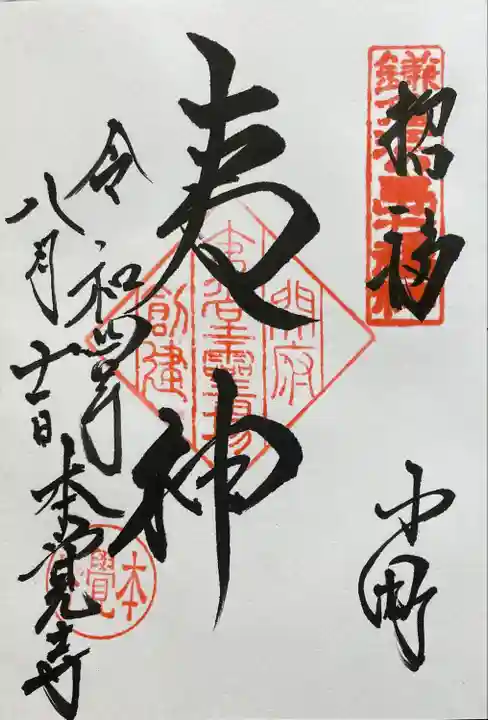 鎌倉
招福
小町
夷神
開府
夷堂霊場
創建
令和四年
八月十一日 本覚寺
本覺